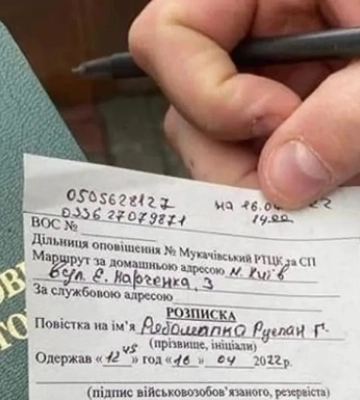 0505628127
0336 27079871
на 16.04 22
14.00
ВОС №
Дільниця оповіщення № Мукачівський РТЦК за СП
Маршрут за домашньою адресою м. Київ
вул. Є. Марченка, 3
За службовою адресою
РОЗПИСКА
Повістка на ім'я Рябошапка Руслан Г.
(прізвище, ініціали)
Одержав «12 45» год «16» 04 2022р.
(підпис військовозобов'язаного, резервіста)